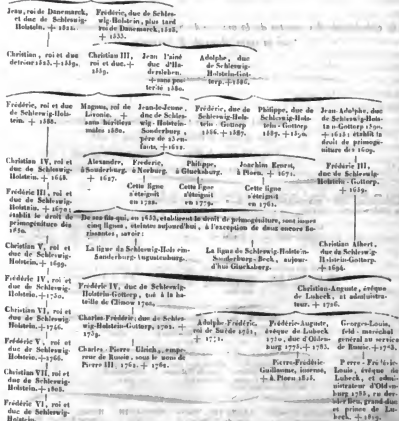 Jean, roi de Danemarck,
et duc de Schleswig-
Holstein. +
Frédéric, duc de Schles-
wig-Holstein, plus tard
roi de Danemarck,
+ 1533.
Christian, roi et duc
Christian III,
roi et duc. +
1559.
Jean l'aîné
duc d'Ha-
dersleben.
+ sans pos-
térité 1580.
Adolphe, duc
de Schleswig-
Holstein-Got-
torp. + 1586.
Frédéric, roi et duc
de Schleswig-Hols-
tein. + 1588.
Magnus, roi de
Livonie. +
mâles 1580.
Jean-le-Jeune,
duc de Schles-
wig-Holstein-
Sonderbourg,
père de 23 en-
fants, + 1622.
Frédéric, duc de
Schleswig-Hols-
tein-Gottorp
1586. + 1587.
Philippe, duc de
Schleswig-Hols-
tein-Gottorp
1587. + 1590.
Jean-Adolphe, duc
de Schleswig-Hols-
tein-Gottorp 1590.
+ 1616; établit le
droit de primogéni-
ture dès 1609.
Christian IV, roi et
duc de Schleswig-
Holstein. + 1648.
Alexandre,
à Sonderbourg.
+ 1627.
Frédéric,
à Norburg.
Cette ligne
s'éteignit
en 1722.
Philippe,
à Glucksburg.
Cette ligne
s'éteignit
en 1779.
Joachim Ernest,
à Ploen. + 1671.
Cette ligne
s'éteignit
en 1761.
Frédéric III,
duc de Schleswig-
Holstein-Gottorp.
+ 1659.
Frédéric III, roi et
duc de Schleswig-
Holstein. + 1670;
établit le droit de
primogéniture dès
1650.
De ses fils qui, en 1633, établirent le droit de primogéniture, sont issues
cinq lignes, éteintes aujourd'hui, à l'exception de deux encore flo-
rissantes, savoir:
La ligne du Schleswig-Holstein-
Sonderburg-Augustenburg.
La ligne de Schleswig-Holstein-
Sonderburg-Beck, aujour-
d'hui Glucksburg.
Christian V, roi et
duc de Schleswig-
Holstein. + 1699.
Christian Albert,
duc de Schles-
wig-Holstein-Gottorp.
+ 1694.
Frédéric IV, roi et
duc de Schleswig-
Holstein. + 1730.
Frédéric IV, duc de Schleswig-
Holstein-Gottorp, tué à la ba-
taille de Clinow 1702.
Christian-Auguste, évêque
de Lubeck, et administra-
teur. + 1726.
Christian VI, roi et
duc de Schleswig-
Holstein. + 1746.
Charles-Frédéric, duc de Schles-
wig-Holstein-Gottorp, 1702. +
1739.
Adolphe-Frédéric,
roi de Suède 1751,
+ 1771.
Frédéric-Auguste,
évêque de Lubeck
1750, duc d'Olden-
burg 1773. + 1785.
Georges-Louis,
feld-maréchal
général au service
de Russie. + 1763.
Frédéric V, roi et
duc de Schleswig-
Holstein. + 1766.
Charles-Pierre-Ulrich, empe-
reur de Russie, sous le nom de
Pierre III, 1762. + 1762.
Pierre-Frédéric-
Guillaume, insensé,
+ à Ploen 1823.
Pierre-Frédéric-
Louis, évêque de
Lubeck, et admi-
nistrateur d'Olden-
burg 1785, en der-
nier lieu, grand-duc
et prince de Lu-
beck, + 1829.
Christian VII, roi et
duc de Schleswig-
Holstein. + 1808.
Frédéric VI, roi et
duc de Schleswig-
Holstein.